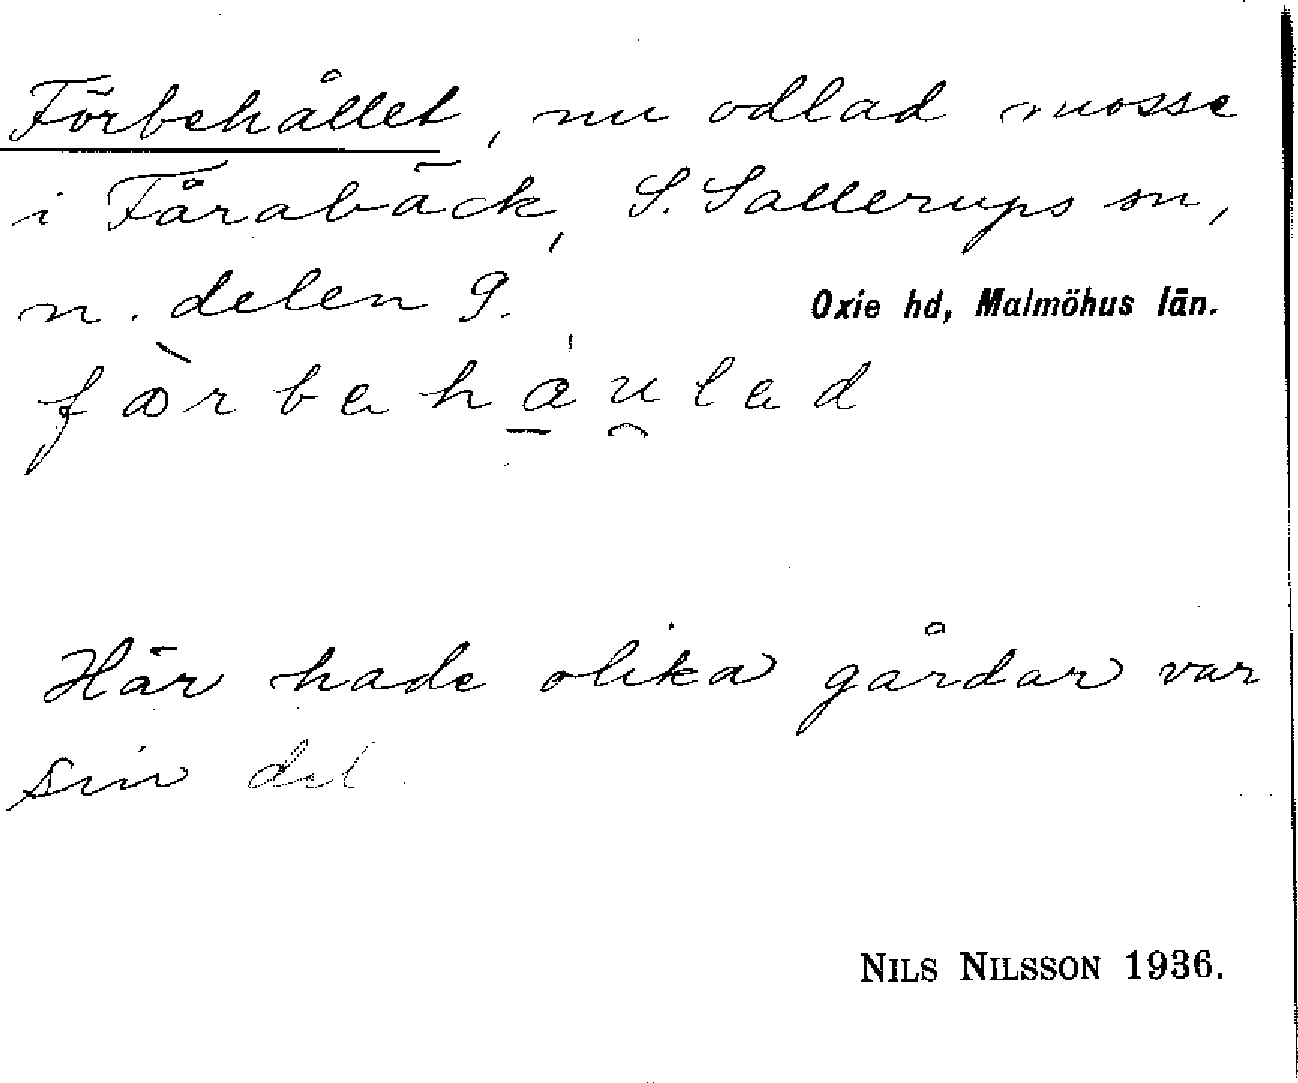 Förbehållet, nu odlad mosse
i Fårabäck, S. Sallerups sn,
n. delen 9. Oxie hd, Malmöhus län.
fœ̀rbahá̱u̯lad
Här hade olika gårdar var
sin del.
NILS NILSSON 1936.